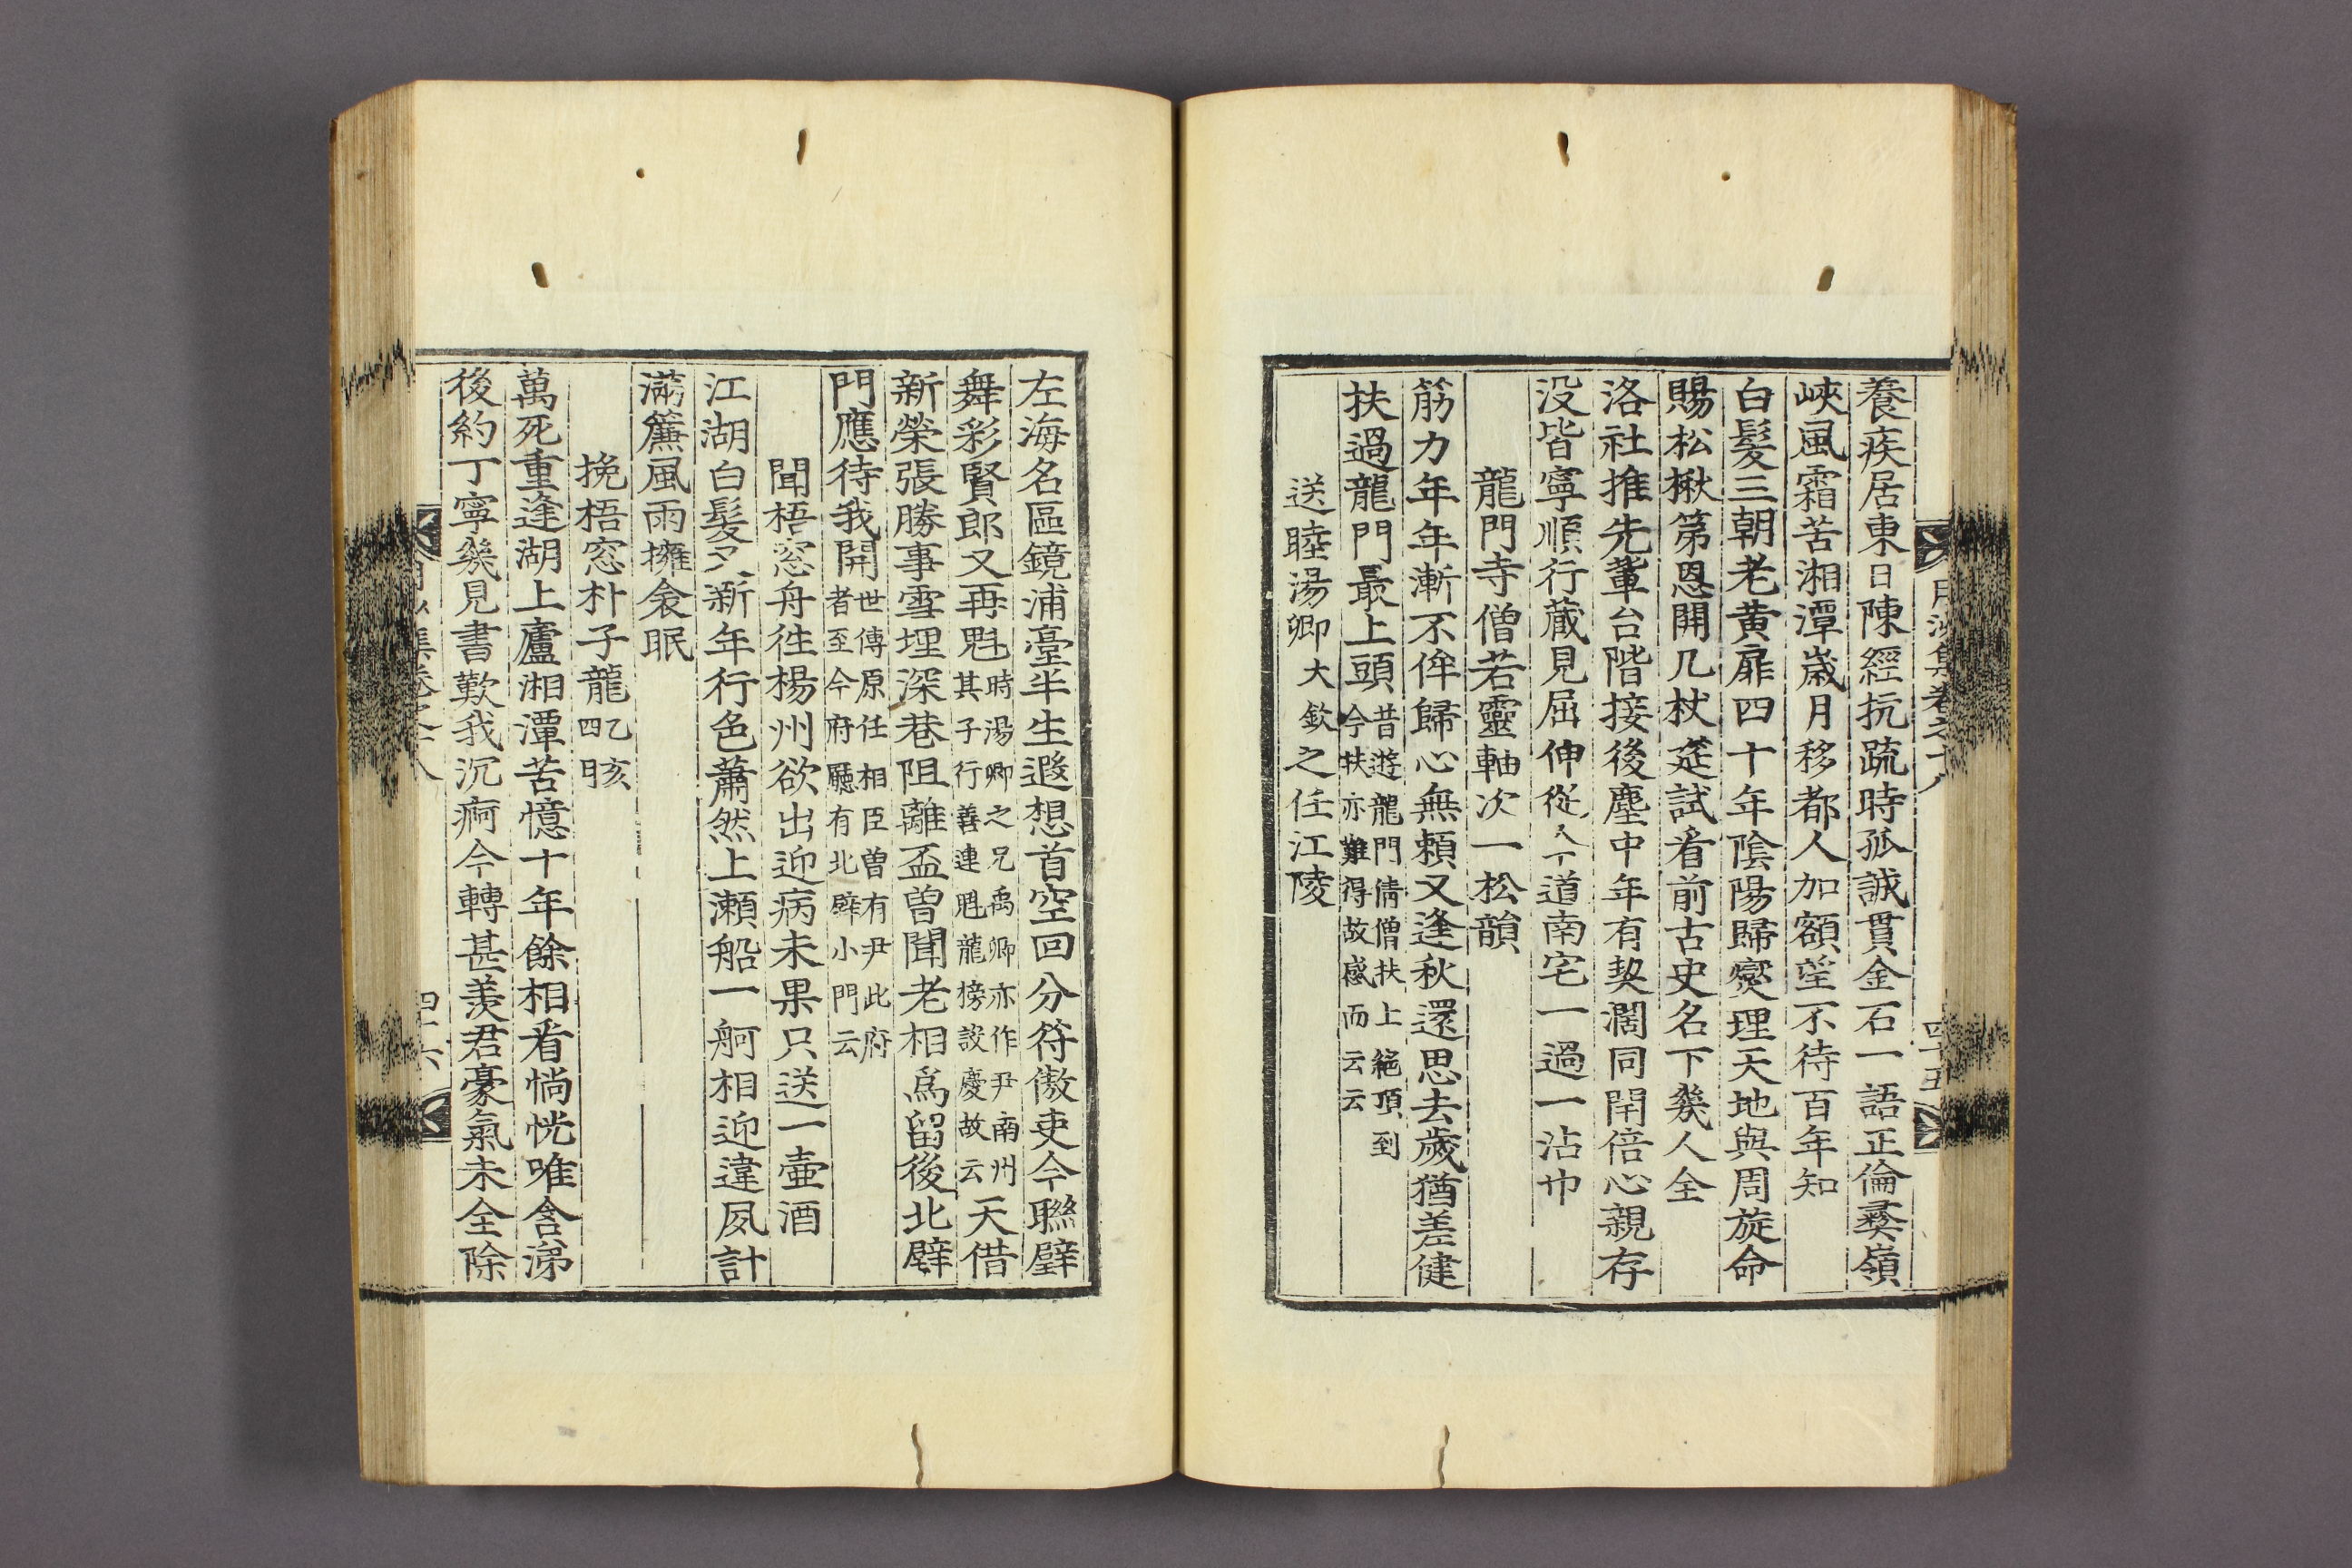 養疾居東日陳經抗䟽時孤誠貫金石一語正倫彛嶺
峽風霜苦湘潭歲月移都人加額望不待百年知
白髮三朝老黃扉四十年陰陽歸燮理天地與周旋命
賜松楸第恩開几杖筵試看前古史名下幾人全
洛社推先輩台階接後塵中年有契濶同閈倍心親存
没皆寧順行藏見屈伸從今道南宅一過一沾巾
龍門寺僧若靈軸次一松韻
筋力年年漸不侔歸心無賴又逢秋還思去歲猶差健
扶過龍門最上頭昔遊龍門倩僧扶上絕頂到今扶亦難得故感而云云
送睦湯卿大欽之任江陵
左海名區鏡浦臺半生遐想首空回分符傲吏今聯璧
舞彩賢郎又再魁時湯卿之兄禹卿亦作尹南州其子行善連魁龍榜設慶故云天借
新榮張勝事雪埋深巷阻離盃曾聞老相爲留後北壁
門應待我開世傳原任相臣曾有尹此府者至今府廳有北壁小門云
聞梧窓舟徃楊州欲出迎病未果只送一壷酒
江湖白髮又新年行色蕭然上瀬船一舸相迎違夙計
滿簾風雨擁衾眠
挽梧窓朴子龍乙亥四月
萬死重逢湖上廬湘潭苦憶十年餘相看惝恍唯含涕
後約丁寧幾見書歎我沉痾今轉甚羨君豪氣未全除